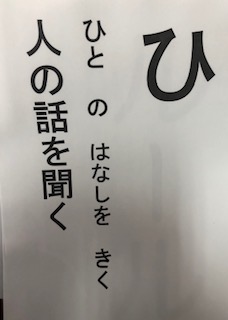 ひ
ひと の はなしを きく
人の話を聞く